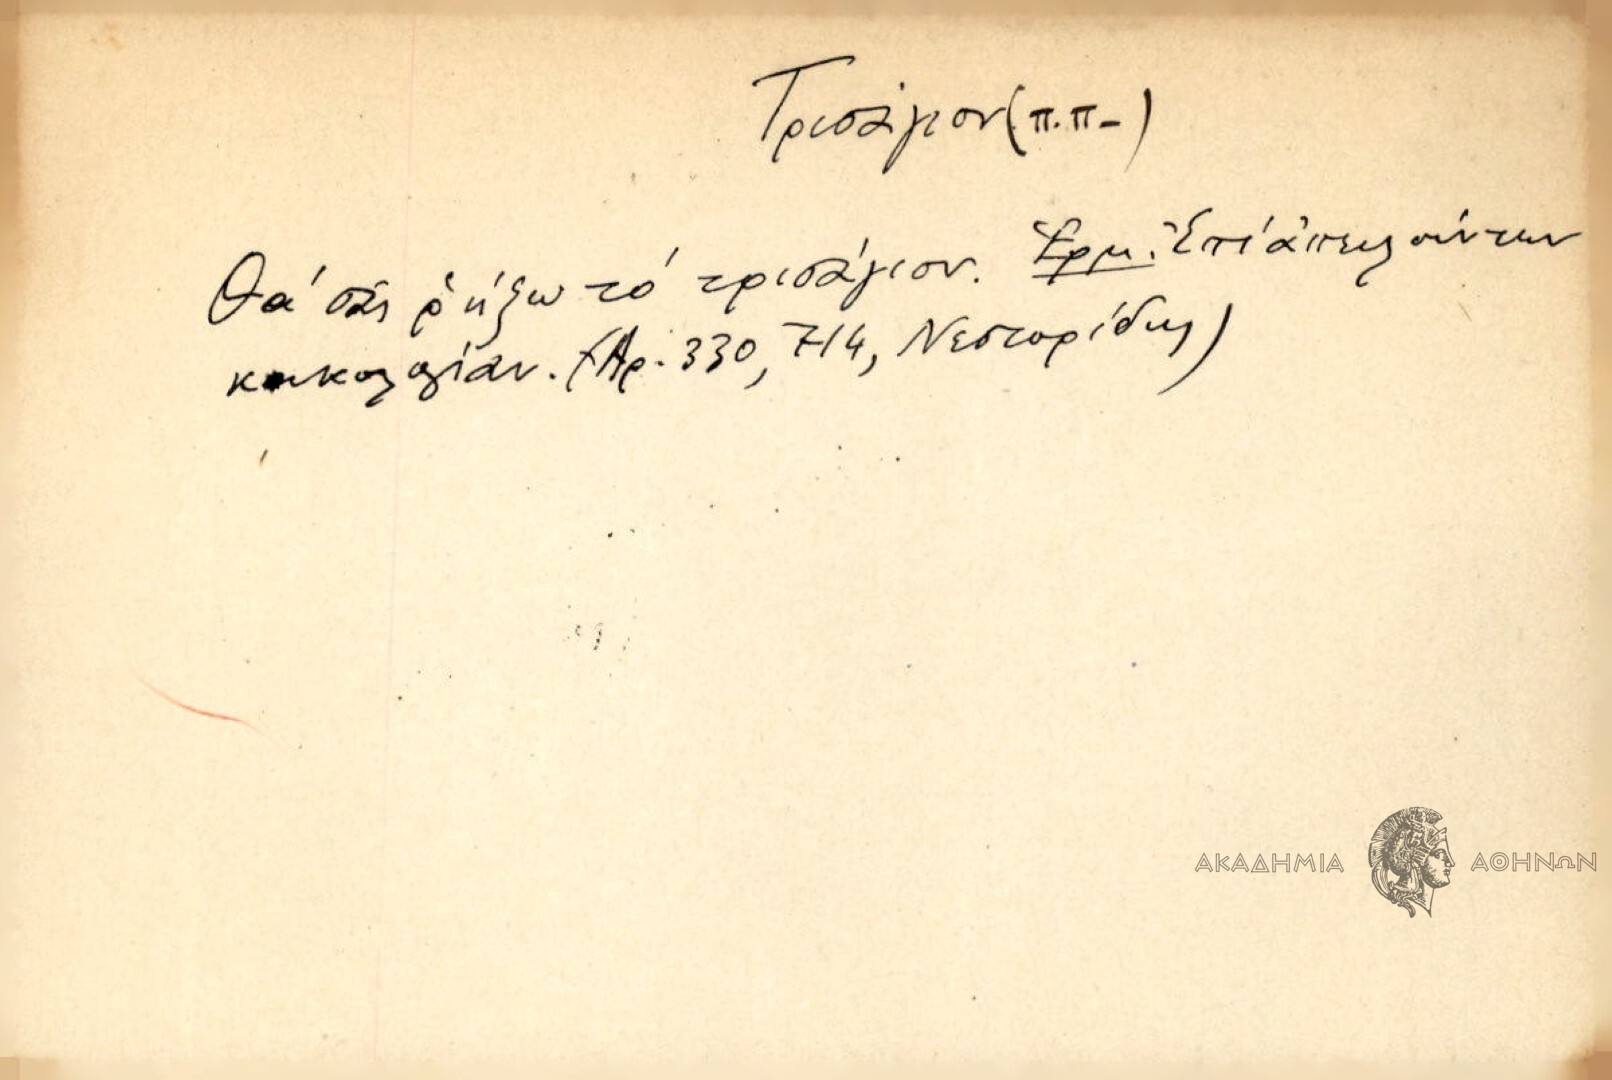 Τρισάγιον (π.π-)
Θά σᾶς ῥήξω τό τρισάγιον. Ἑρμ. Ἐπί ἀπειλούντων
κακολογίαν. (Ἀρ. 330, 714, Νεστορίδης)
ΑΚΑΔΗΜΙΑ ΑΘΗΝΩΝ